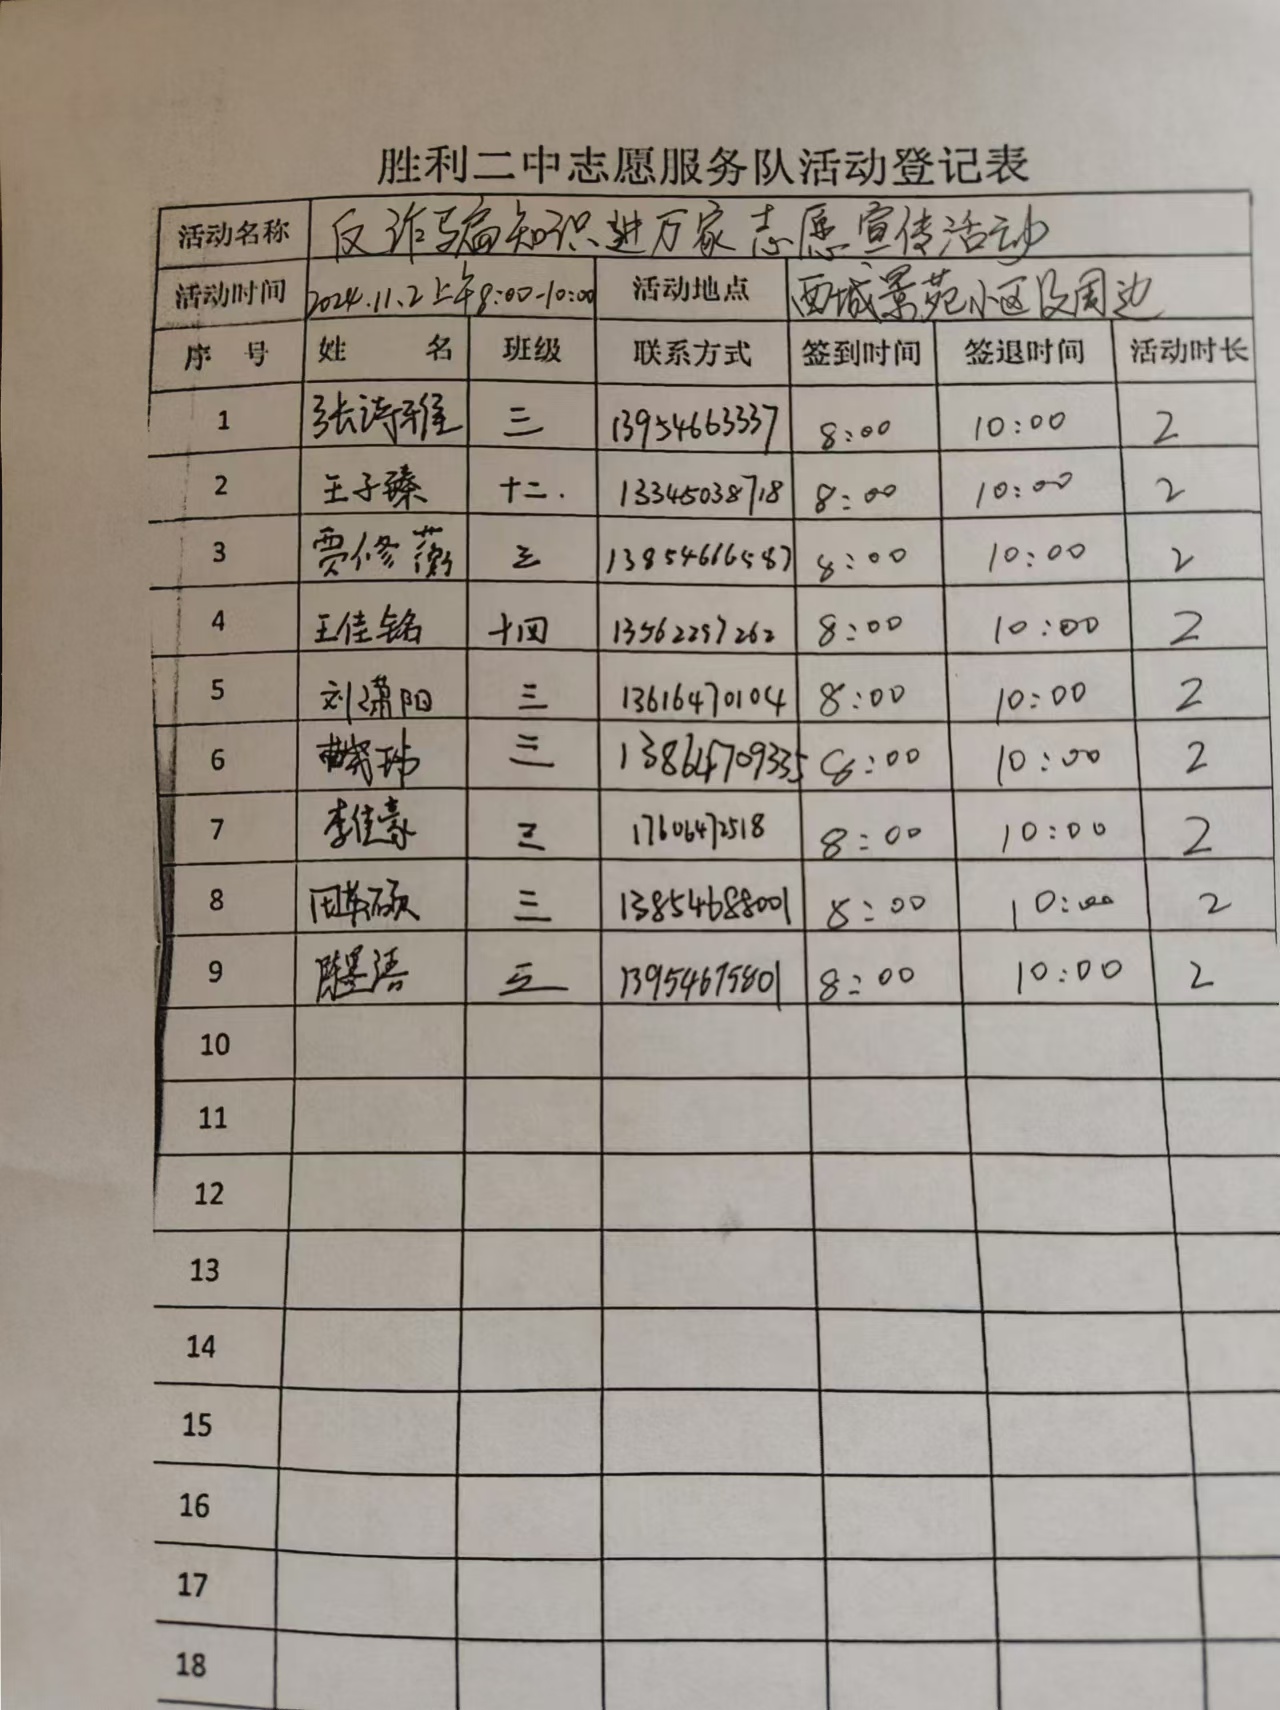 胜利二中志愿服务队活动登记表
活动名称 反诈骗知识进万家志愿宣传活动
活动时间 2024.11.2上午8:00-10:00 活动地点 西城景苑小区及周边
序号 姓名 班级 联系方式 签到时间 签退时间 活动时长
1 张诗雅 三 13954663337 8:00 10:00 2
2 王子臻 十二. 13345038718 8:00 10:00 2
3 贾修蘅 三 13854666587 8:00 10:00 2
4 王佳铭 十四 13562297262 8:00 10:00 2
5 刘潇阳 三 13616470104 8:00 10:00 2
6 三 13864709335 8:00 10:00 2
7 李佳豪 三 17606472518 8:00 10:00 2
8 三 13854688001 8:00 10:00 2
9 陈墨语 三 13954675801 8:00 10:00 2
10
11
12
13
14
15
16
17
18